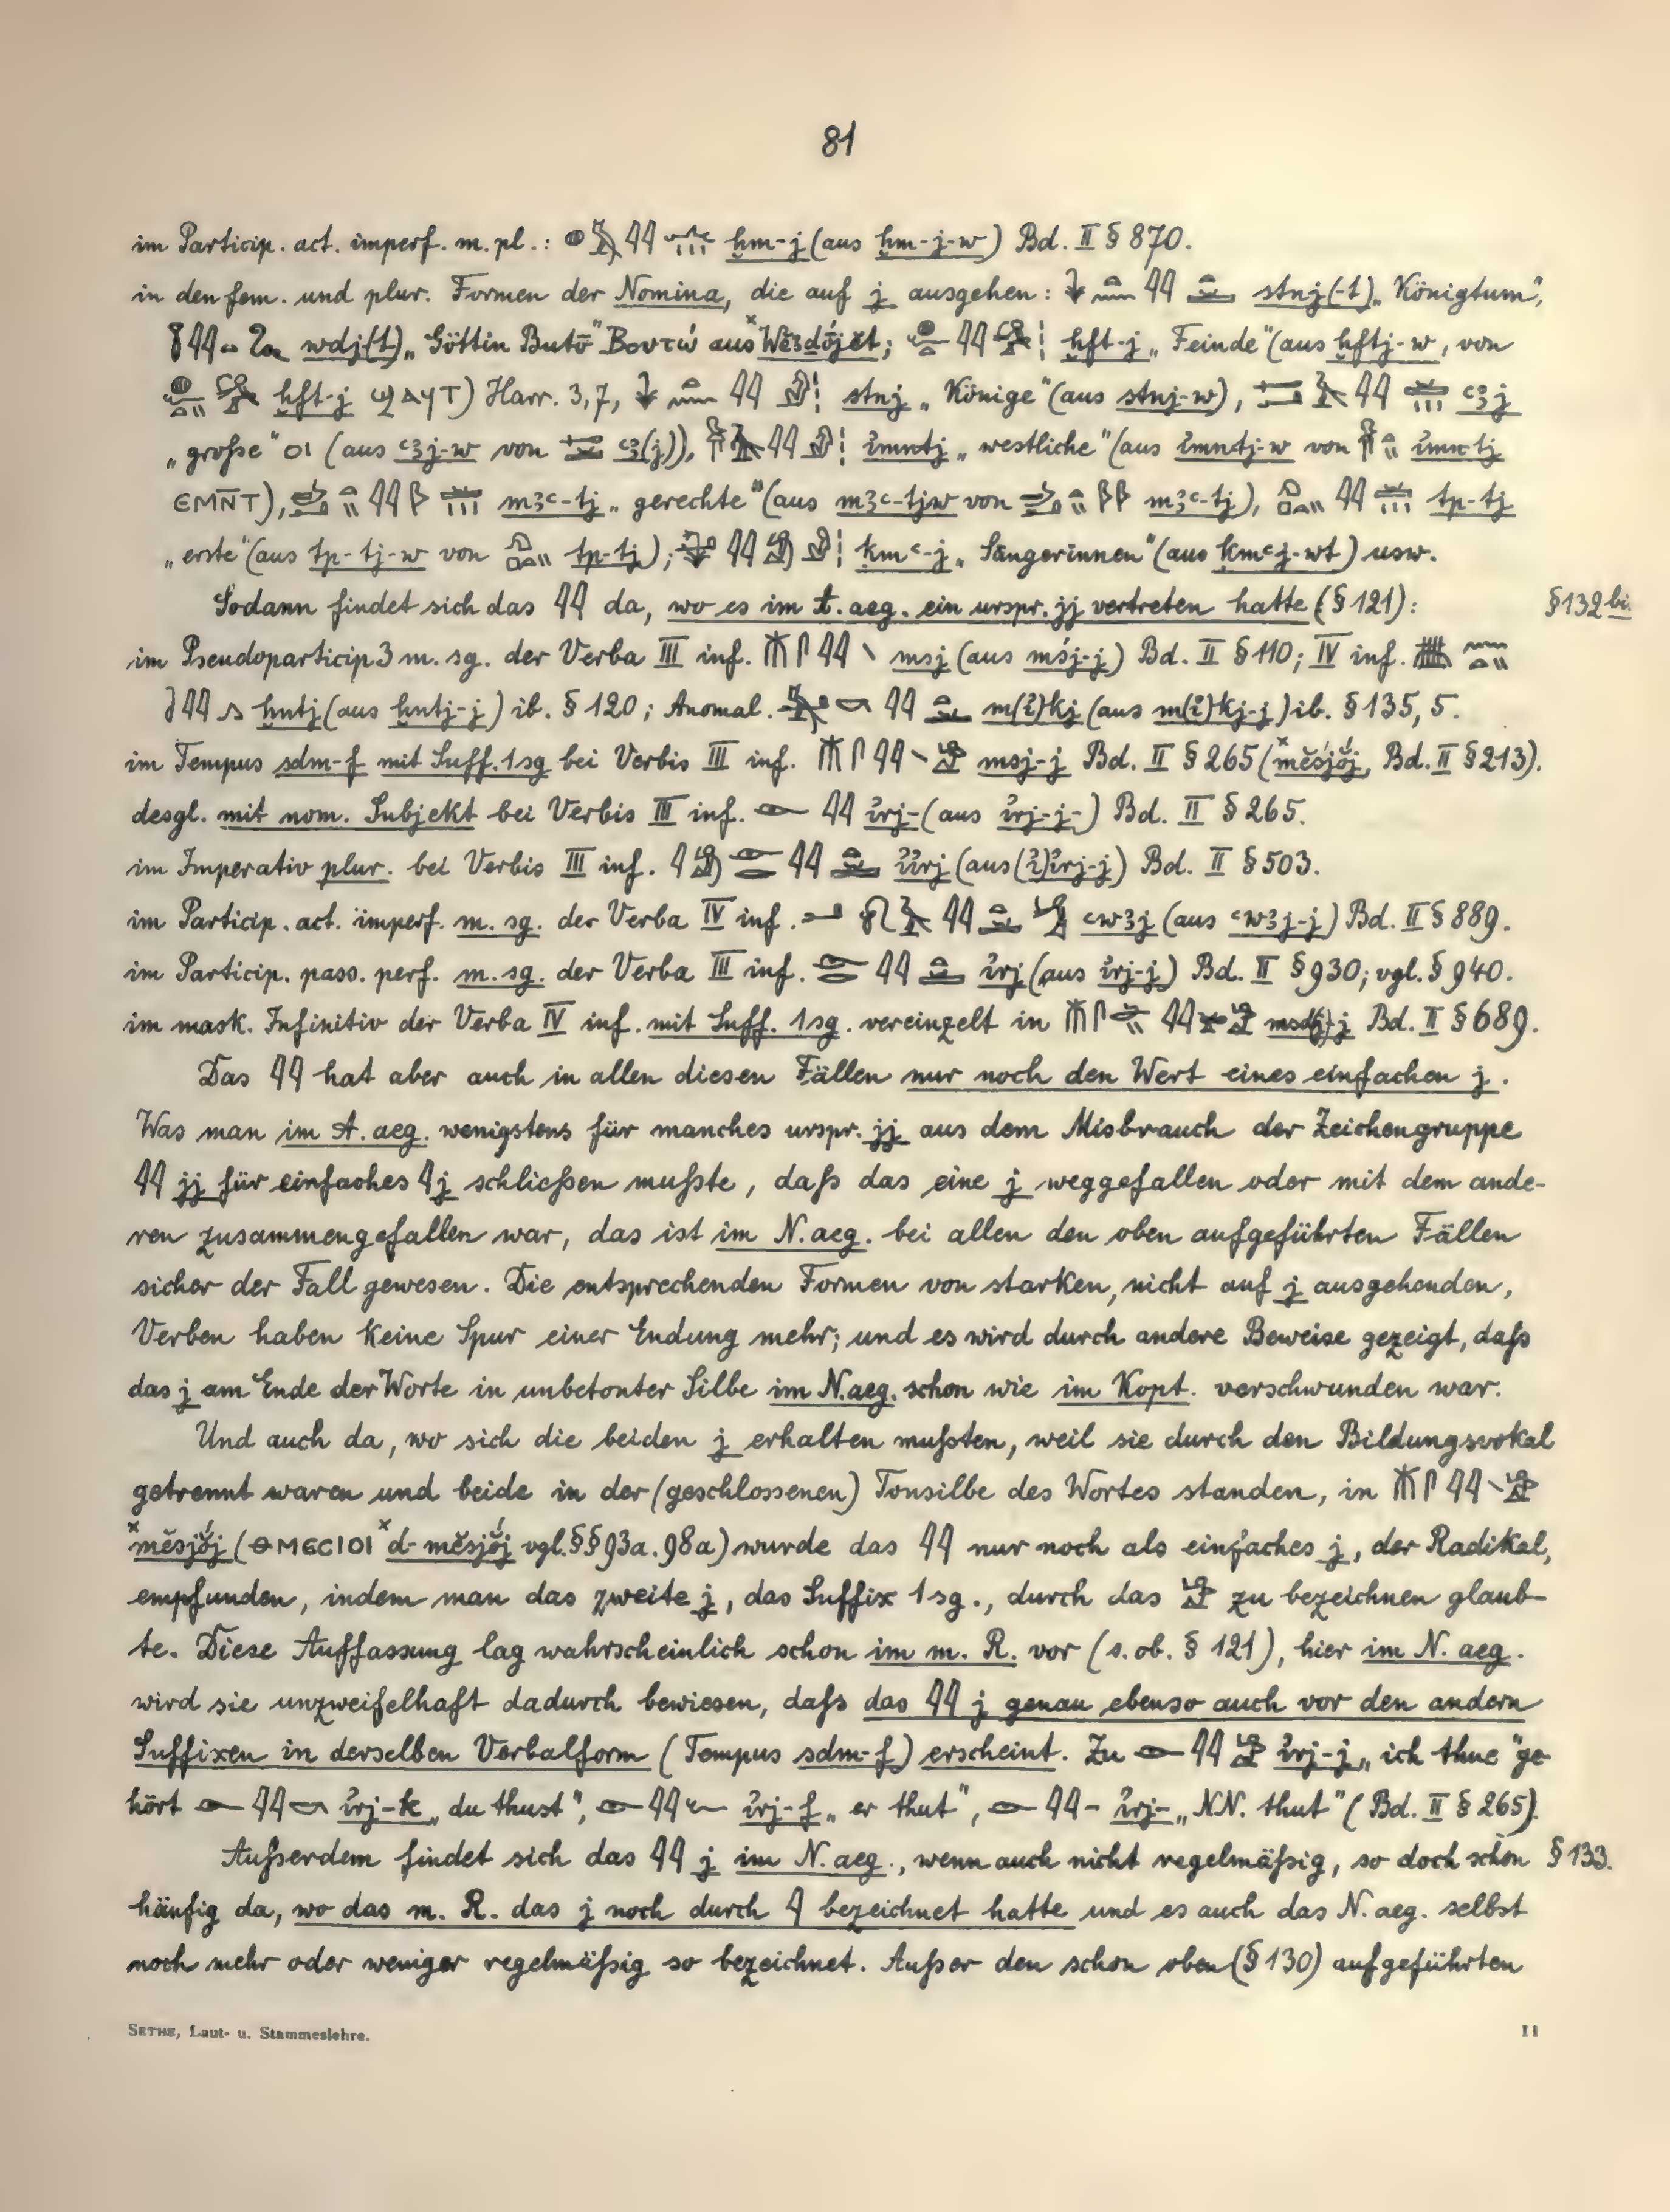 81
im Particip. act. imperf. m. pl.: 𓇌 ḫm-j (aus ḫm-j-w) Bd. II § 870.
in den fem. und plur. Formen der Nomina, die auf j ausgehen: 𓇌 stnj(-t) „Königtum",
𓇌 wdj(t) „Göttin Butō" Βουτώ aus; 𓇌 ḫft-j „Feinde" (aus ḫftj-w, von
ḫft-j ϢΑϤΤ) Harr. 3,7, 𓇌 stnj „Könige" (aus stnj-w), 𓇌 ꜥꜣj
„große" ΟΙ (aus ꜥꜣj-w von ꜥꜣ(j)), 𓇌 i͗mntj „westliche" (aus i͗mntj-w von i͗mn-tj
ⲈⲘⲚ̅Ⲧ), 𓇌 mꜣꜥ-tj „gerechte" (aus mꜣꜥ-tjw von mꜣꜥ-tj), 𓇌 tp-tj
„erste" (aus tp-tj-w von tp-tj); 𓇌 „Sängerinnen" (aus) usw.
Sodann findet sich das 𓇌 da, wo es im A. aeg. ein urspr. jj vertreten hatte (§ 121): § 132 bis.
im Pseudoparticip 3 m. sg. der Verba III inf. 𓇌 msj (aus mśj-j) Bd. II § 110; IV inf.
𓇌 ḫntj (aus ḫntj-j) ib. § 120; Anomal. 𓇌 m(i͗)kj (aus m(i͗)kj-j) ib. § 135, 5.
im Tempus sdm-f mit Suff. 1 sg bei Verbis III inf. 𓇌 msj-j Bd. II § 265 (ˣmĕsjŏ́j, Bd. II § 213).
desgl. mit nom. Subjekt bei Verbis III inf. 𓇌 i͗rj- (aus i͗rj-j-) Bd. II § 265.
im Imperativ plur. bei Verbis III inf. 𓇌 i͗i͗rj (aus (i͗)i͗rj-j) Bd. II § 503.
im Particip. act. imperf. m. sg. der Verba IV inf. 𓇌 ꜥwꜣj (aus ꜥwꜣj-j) Bd. II § 889.
im Particip. pass. perf. m. sg. der Verba III inf. 𓇌 i͗rj (aus i͗rj-j) Bd. II § 930; vgl. § 940.
im mask. Infinitiv der Verba IV inf. mit Suff. 1 sg. vereinzelt in 𓇌 Bd. II § 689.
Das 𓇌 hat aber auch in allen diesen Fällen nur noch den Wert eines einfachen j.
Was man im A. aeg. wenigstens für manches urspr. jj aus dem Misbrauch der Zeichengruppe
𓇌 jj für einfaches 𓇋 j schließen mußte, daß das eine j weggefallen oder mit dem ande-
ren zusammengefallen war, das ist im N. aeg. bei allen den oben aufgeführten Fällen
sicher der Fall gewesen. Die entsprechenden Formen von starken, nicht auf j ausgehenden,
Verben haben keine Spur einer Endung mehr; und es wird durch andere Beweise gezeigt, daß
das j am Ende der Worte in unbetonter Silbe im N. aeg. schon wie im Kopt. verschwunden war.
Und auch da, wo sich die beiden j erhalten mußten, weil sie durch den Bildungsvokal
getrennt waren und beide in der (geschlossenen) Tonsilbe des Wortes standen, in 𓇌
ˣmĕsjŏ́j (ⲐⲘⲈⲤⲒⲞⲒ ˣd-mĕsjŏ́j vgl. §§ 93a. 98a) wurde das 𓇌 nur noch als einfaches j, der Radikal,
empfunden, indem man das zweite j, das Suffix 1 sg., durch das 𓀀 zu bezeichnen glaub-
te. Diese Auffassung lag wahrscheinlich schon im m. R. vor (s. ob. § 121), hier im N. aeg.
wird sie unzweifelhaft dadurch bewiesen, daß das 𓇌 j genau ebenso auch vor den andern
Suffixen in derselben Verbalform (Tempus sdm-f) erscheint. Zu 𓂋𓇌𓀀 i͗rj-j „ich thue" ge-
hört 𓂋𓇌𓎡 i͗rj-k „du thust", 𓂋𓇌𓆑 i͗rj-f „er thut", 𓂋𓇌- i͗rj- „NN. thut" (Bd. II § 265).
Außerdem findet sich das 𓇌 j im N. aeg., wenn auch nicht regelmäßig, so doch schon § 133.
häufig da, wo das m. R. das j noch durch 𓇋 bezeichnet hatte und es auch das N. aeg. selbst
noch mehr oder weniger regelmäßig so bezeichnet. Außer den schon oben (§ 130) aufgeführten
SETHE, Laut- u. Stammeslehre. 11